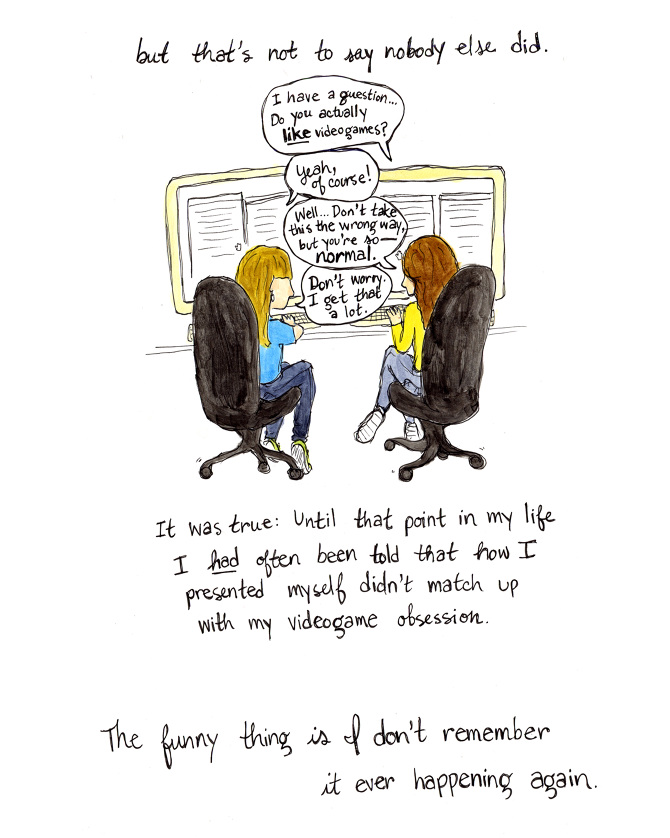 but that's not to say nobody else did.
I have a question...
Do you actually
like videogames?
Yeah,
of course!
Well... Don't take
this the wrong way,
but you're so—
normal.
Don't worry.
I get that
a lot.
It was true: Until that point in my life
I had often been told that how I
presented myself didn't match up
with my videogame obsession.
The funny thing is I don't remember
it ever happening again.